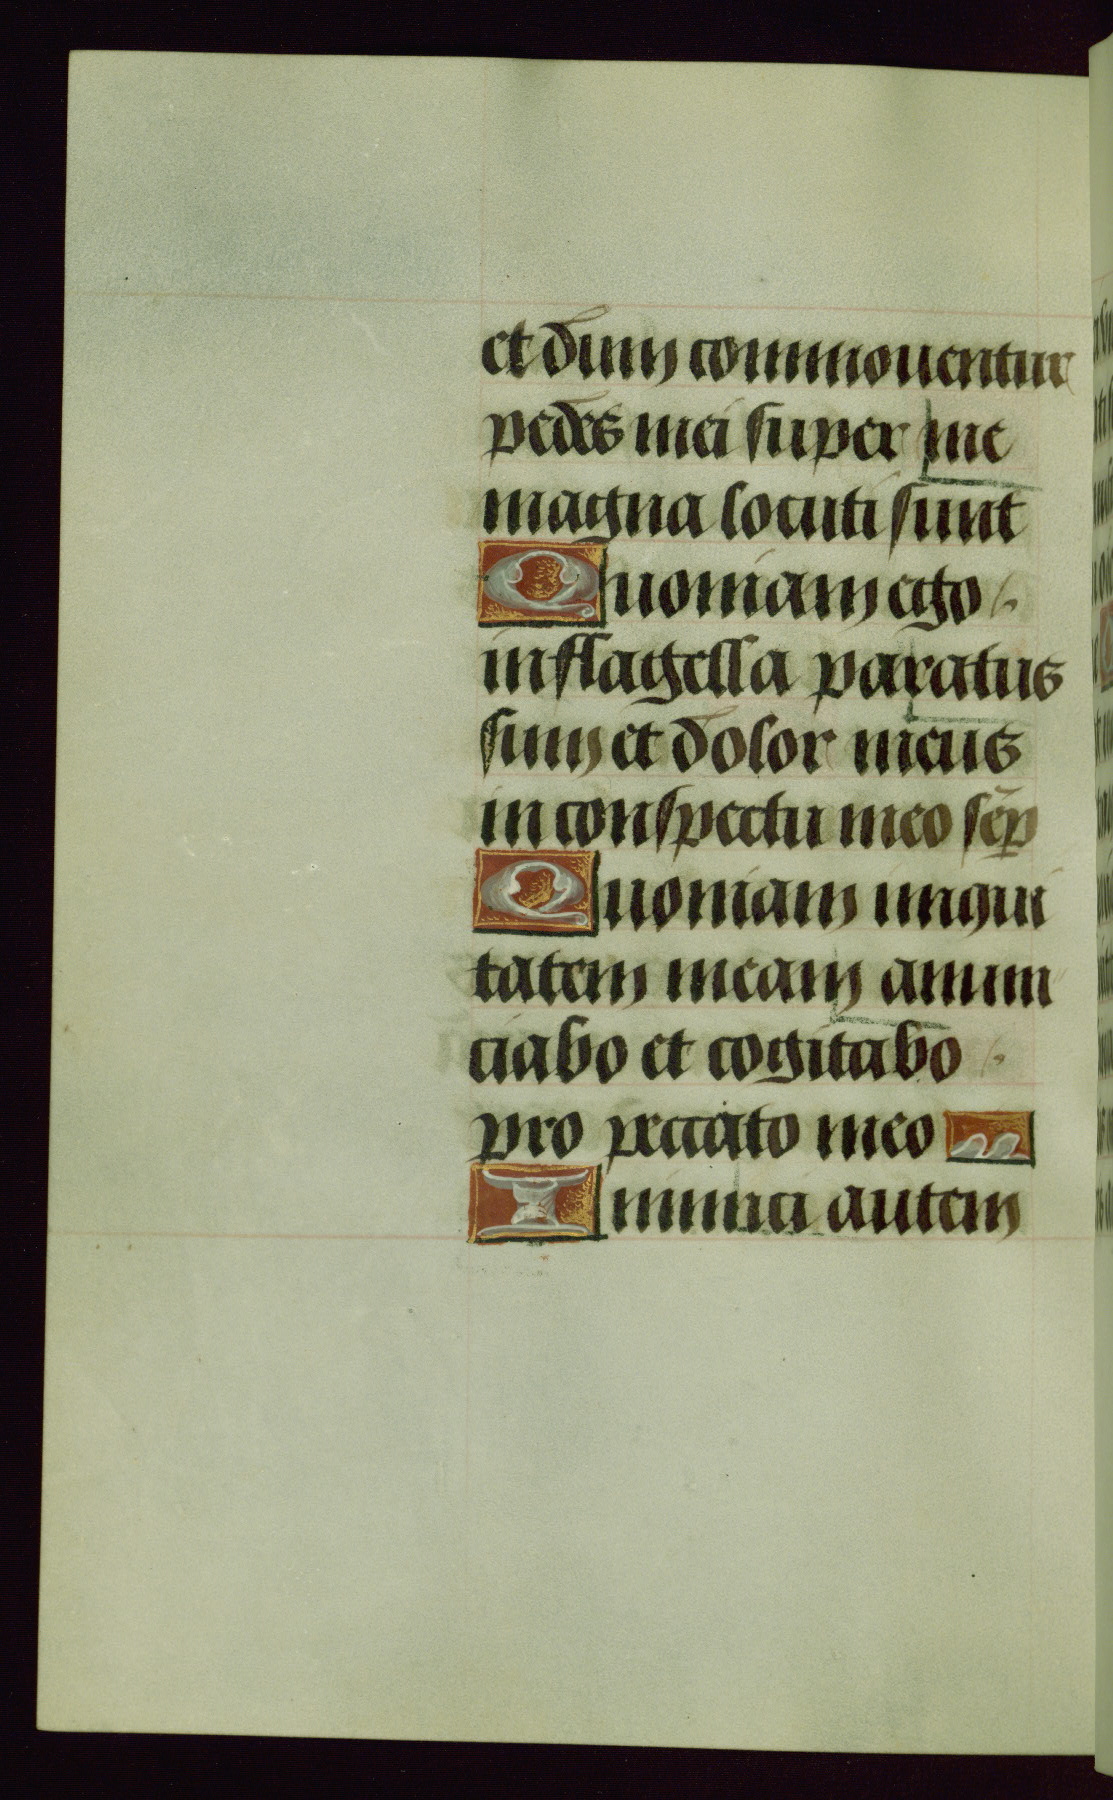 et dum commouentur
pedes mei super me
magna locuti sunt
Quoniam ego
in flagella paratus
sum et dolor meus
in conspectu meo sēp
Quoniam iniqui
tatem meam annun
ciabo et cogitabo
pro peccato meo
Inimici autem